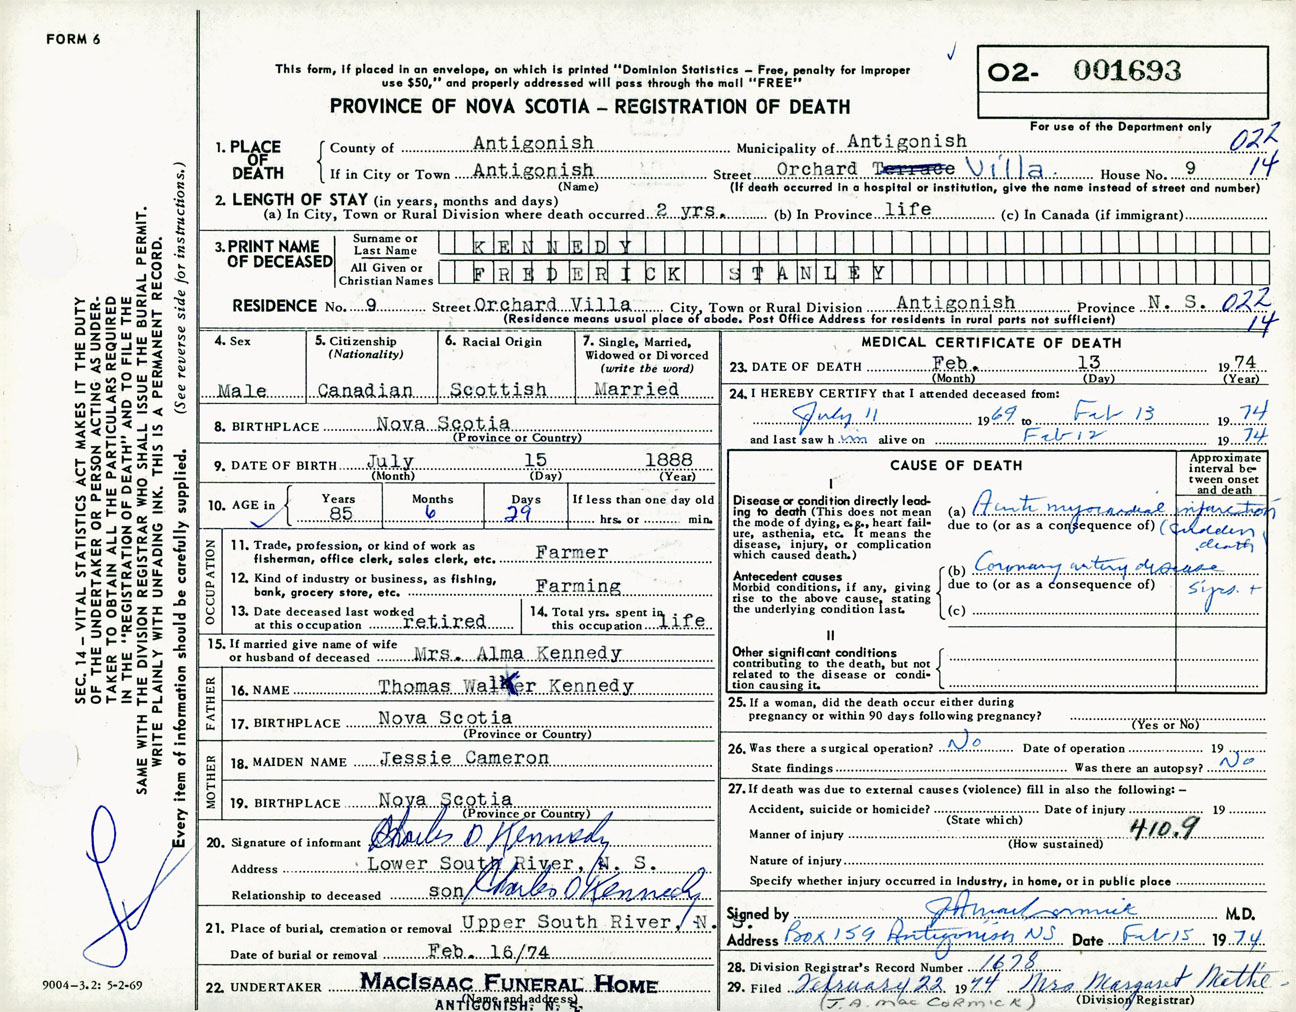 FORM 6
This form, if placed in an envelope, on which is printed "Dominion Statistics – Free, penalty for improper
use $50," and properly addressed will pass through the mail "FREE"
PROVINCE OF NOVA SCOTIA – REGISTRATION OF DEATH
02- 001693
For use of the Department only
022
14
1. PLACE OF DEATH
County of Antigonish Municipality of Antigonish
If in City or Town Antigonish Street Orchard Terrace Villa. House No. 9
(Name) (If death occurred in a hospital or institution, give the name instead of street and number)
2. LENGTH OF STAY (in years, months and days)
(a) In City, Town or Rural Division where death occurred 2 yrs. (b) In Province life (c) In Canada (if immigrant)
3. PRINT NAME OF DECEASED
Surname or Last Name KENNEDY
All Given or Christian Names FREDERICK STANLEY
RESIDENCE No. 9 Street Orchard Villa City, Town or Rural Division Antigonish Province N. S. 022
(Residence means usual place of abode. Post Office Address for residents in rural parts not sufficient) 14
4. Sex
Male
5. Citizenship
(Nationality)
Canadian
6. Racial Origin
Scottish
7. Single, Married,
Widowed or Divorced
(write the word)
Married
8. BIRTHPLACE Nova Scotia
(Province or Country)
9. DATE OF BIRTH July 15 1888
(Month) (Day) (Year)
10. AGE in
Years Months Days If less than one day old
85 6 29 hrs. or min.
OCCUPATION
11. Trade, profession, or kind of work as
fisherman, office clerk, sales clerk, etc. Farmer
12. Kind of industry or business, as fishing,
bank, grocery store, etc. Farming
13. Date deceased last worked
at this occupation retired
14. Total yrs. spent in
this occupation life
15. If married give name of wife
or husband of deceased Mrs. Alma Kennedy
FATHER
16. NAME Thomas Walker Kennedy
17. BIRTHPLACE Nova Scotia
(Province or Country)
MOTHER
18. MAIDEN NAME Jessie Cameron
19. BIRTHPLACE Nova Scotia
(Province or Country)
20. Signature of informant Charles D. Kennedy
Address Lower South River, N. S.
Relationship to deceased son Charles D Kennedy
21. Place of burial, cremation or removal Upper South River, N.
S.
Date of burial or removal Feb. 16/74
22. UNDERTAKER MACISAAC FUNERAL HOME
(Name and address)
ANTIGONISH, N. S.
MEDICAL CERTIFICATE OF DEATH
23. DATE OF DEATH Feb. 13 1974
(Month) (Day) (Year)
24. I HEREBY CERTIFY that I attended deceased from:
July 11 1969 to Feb 13 1974
and last saw him alive on Feb 12 1974
CAUSE OF DEATH
Approximate
interval be-
tween onset
and death
I
Disease or condition directly lead-
ing to death (This does not mean
the mode of dying, e.g., heart fail-
ure, asthenia, etc. It means the
disease, injury, or complication
which caused death.)
(a) Acute myocardial infarction
due to (or as a consequence of) (sudden
death
Antecedent causes
Morbid conditions, if any, giving
rise to the above cause, stating
the underlying condition last.
(b) Coronary artery disease
due to (or as a consequence of) 5 yrs. +
(c)
II
Other significant conditions
contributing to the death, but not
related to the disease or condi-
tion causing it.
25. If a woman, did the death occur either during
pregnancy or within 90 days following pregnancy?
(Yes or No)
26. Was there a surgical operation? No Date of operation 19
State findings Was there an autopsy? No
27. If death was due to external causes (violence) fill in also the following: –
Accident, suicide or homicide? Date of injury 19
(State which)
Manner of injury 410.9
(How sustained)
Nature of injury
Specify whether injury occurred in Industry, in home, or in public place
Signed by J A MacCormick M.D.
Address Box 159 Antigonish NS Date Feb 15 1974
28. Division Registrar's Record Number 1678
29. Filed February 22 1974 Mrs Margaret
(J. A. MAC CORMICK) (Division Registrar)
SEC. 14 – VITAL STATISTICS ACT MAKES IT THE DUTY
OF THE UNDERTAKER OR PERSON ACTING AS UNDER-
TAKER TO OBTAIN ALL THE PARTICULARS REQUIRED
IN THE "REGISTRATION OF DEATH" AND TO FILE THE
SAME WITH THE DIVISION REGISTRAR WHO SHALL ISSUE THE BURIAL PERMIT.
WRITE PLAINLY WITH UNFADING INK. THIS IS A PERMANENT RECORD.
Every item of information should be carefully supplied. (See reverse side for instructions.)
9004-3.2: 5-2-69